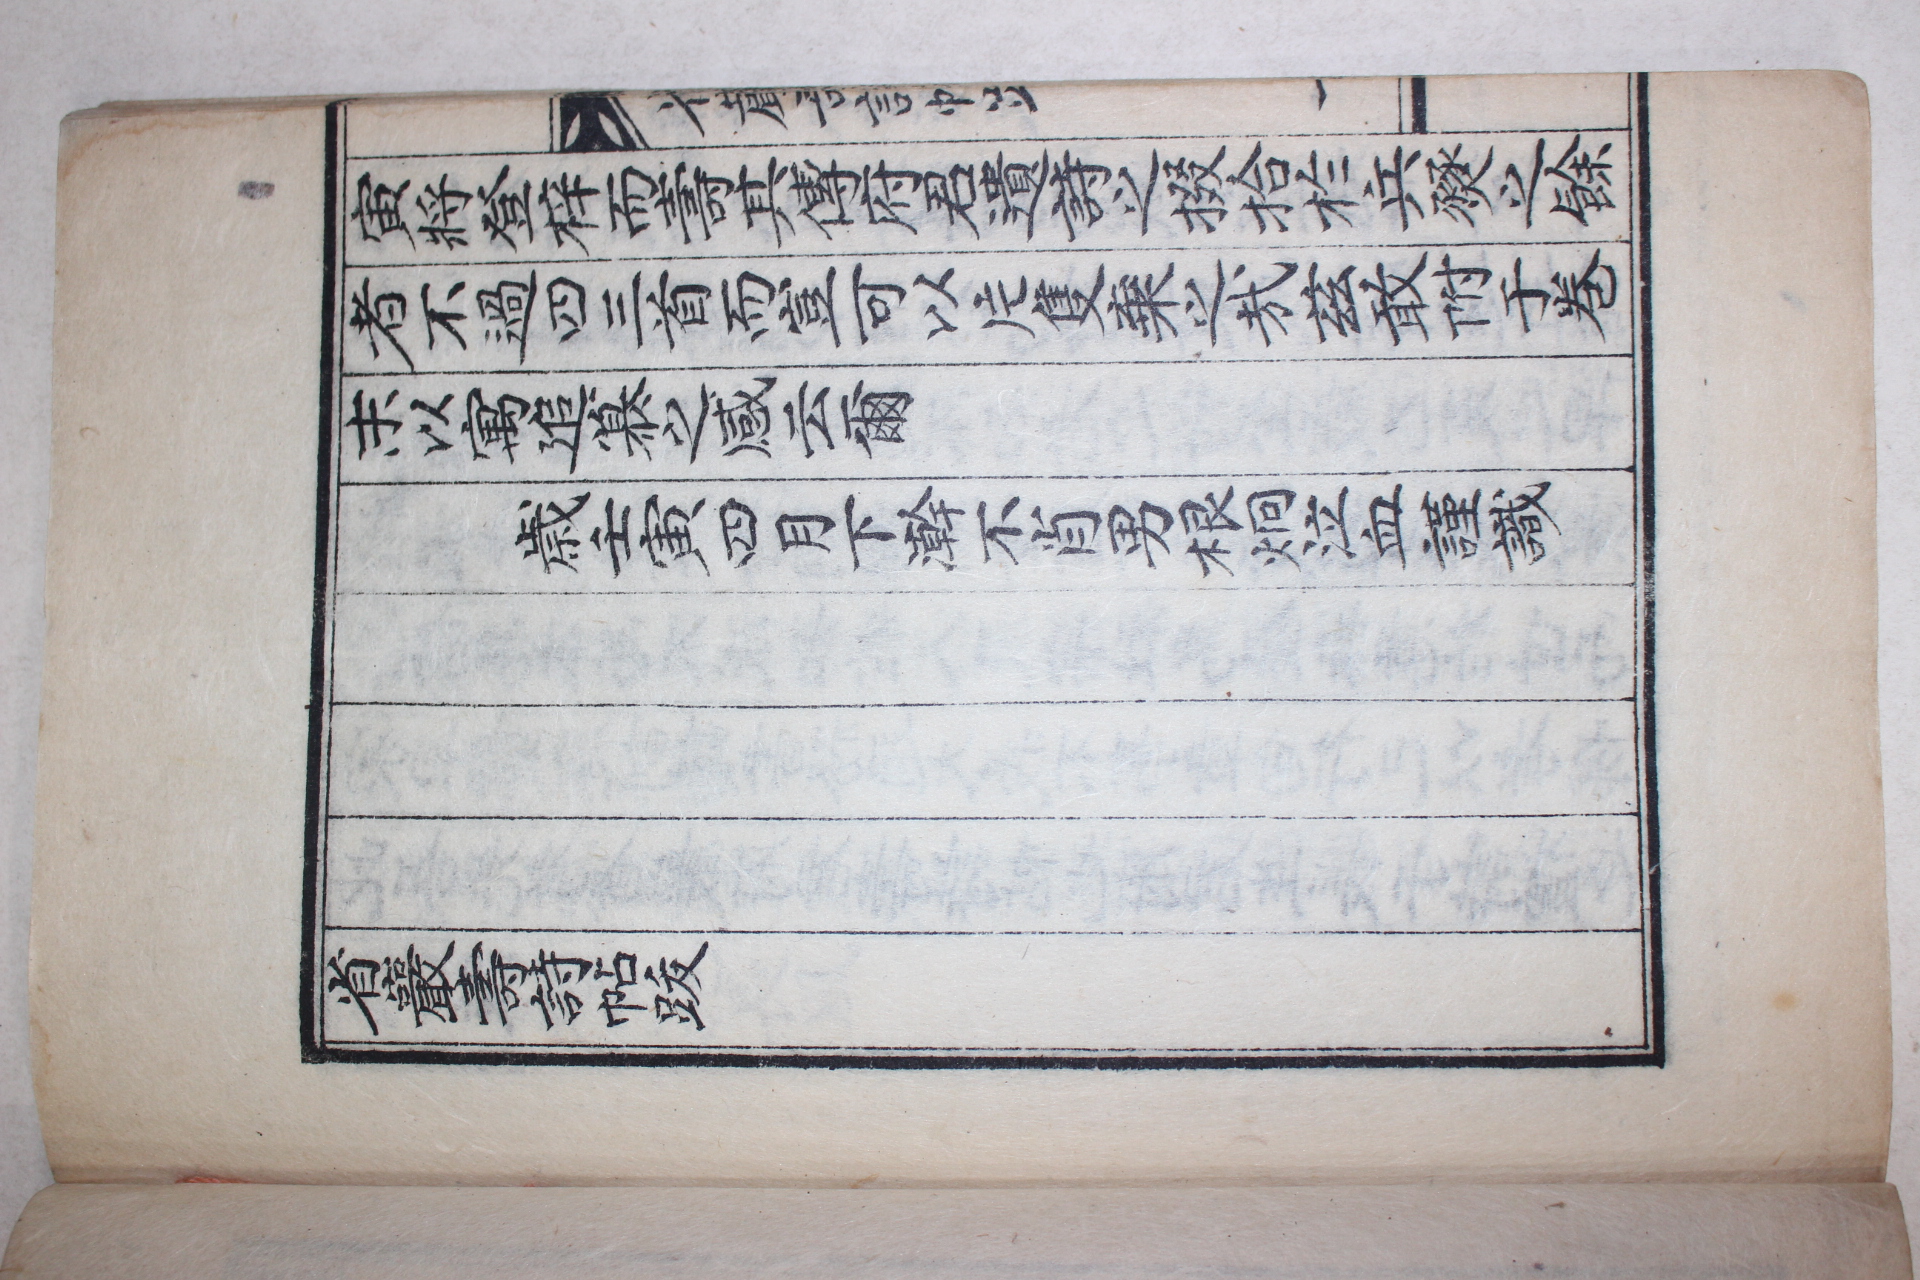 寅將登梓而壽其傳府君遺詩之掇拾於兵燹之餘
者不過四三首而豈可以片隻棄之哉玆敢附于卷
末以寓追慕之感云爾
歲壬寅四月下澣不肖男根炯泣血謹識
省巖壽詩帖跋